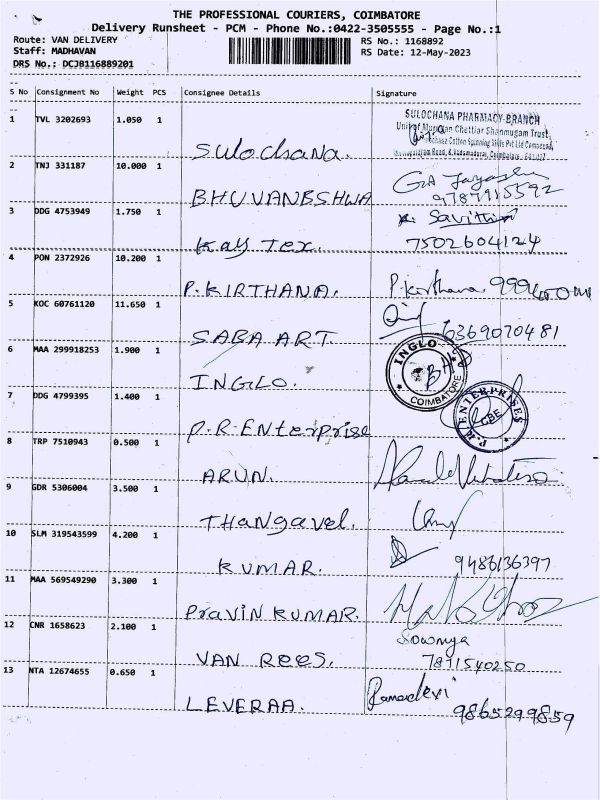 THE PROFESSIONAL COURIERS, COIMBATORE
Delivery Runsheet - PCM - Phone No.:0422-3505555 - Page No.:1
Route: VAN DELIVERY RS No.: 1168892
Staff: MADHAVAN RS Date: 12-May-2023
DRS No.: DCJB116889201
S No Consignment No Weight PCS Consignee Details Signature
1 TVL 3202693 1.050 1 Sulochana. SULOCHANA PHARMACY-BRANCH
Chettiar Shanmugam Trust
Cotton Spinning Mills Pvt Ltd
2 TNJ 331187 10.000 1 BHUVANESHWA
9787915592
3 DDG 4753949 1.750 1 Kay Tex. Savithiri
7502604124
4 PON 2372926 10.200 1 P.KIRTHANA. P.kirthana.
5 KOC 60761120 11.650 1 SABA ART 6369070481
6 MAA 299918253 1.900 1 INGLO. INGLO COIMBATORE
7 DDG 4799395 1.400 1 P.R.Enterprise P.R. ENTERPRISES CBE
8 TRP 7510943 0.500 1 ARUN.
9 GDR 5306004 3.500 1 Thangavel.
10 SLM 319543599 4.200 1 KUMAR. 9486136397
11 MAA 569549290 3.300 1 Pravin KUMAR.
12 CNR 1658623 2.100 1 VAN ROES. Sowmya
7871540250
13 NTA 12674655 0.650 1 LEVERAA. Ramadevi
9865299859